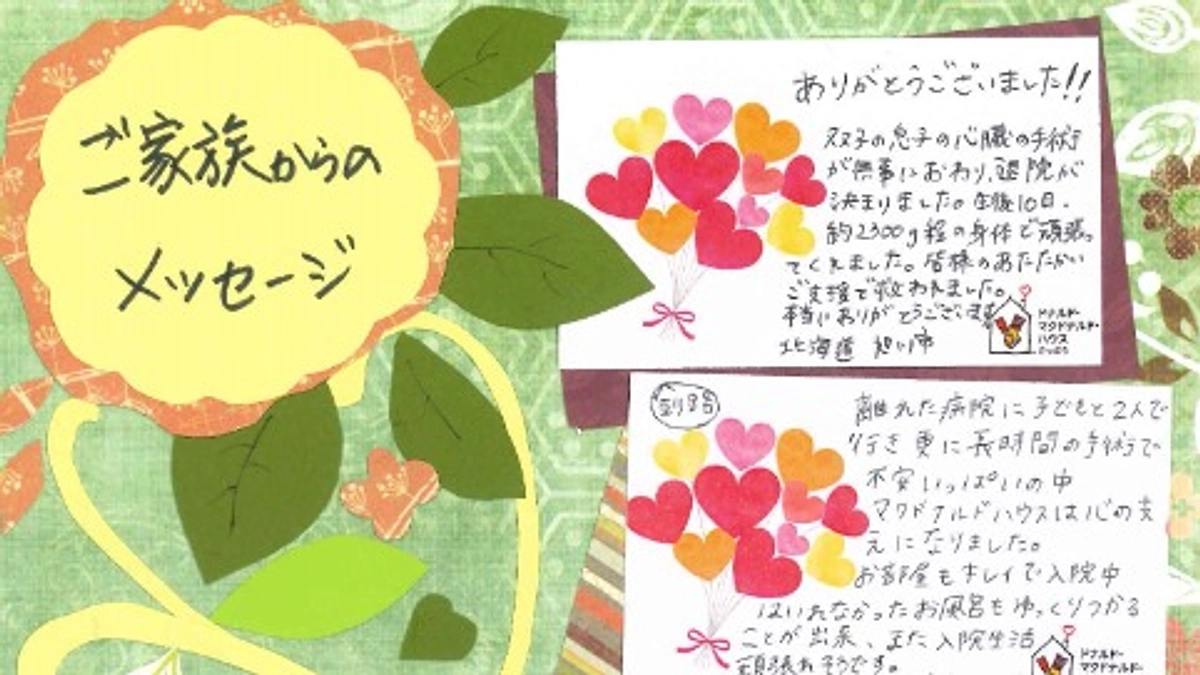 ご家族からの
メッセージ
ありがとうございました!!
双子の息子の心臓の手術
が無事におわり、退院が
決まりました。生後10日、
約2300g程の身体で頑張っ
てくれました。皆様のあたたかい
ご支援で救われました。
本当にありがとうございます
北海道 旭川市
ドナルド・
マクドナルド・
ハウス
さっぽろ
釧路
離れた病院に子どもと2人で
行き更に長時間の手術で
不安いっぱいの中
マクドナルドハウスは心の支
えになりました。
お部屋もキレイで入院中
はいれなかったお風呂もゆっくりつかる
ことが出来、また入院生活
頑張れそうです。
ドナルド・
マクドナルド・